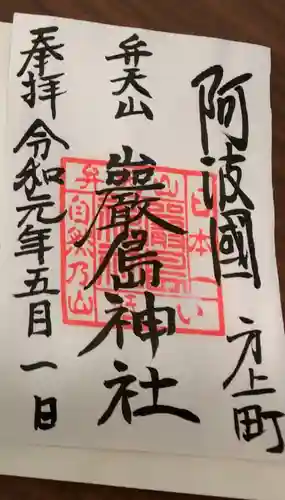 阿波國 方上町
弁天山
巖島神社
奉拝 令和元年五月一日
日本一
自然乃山